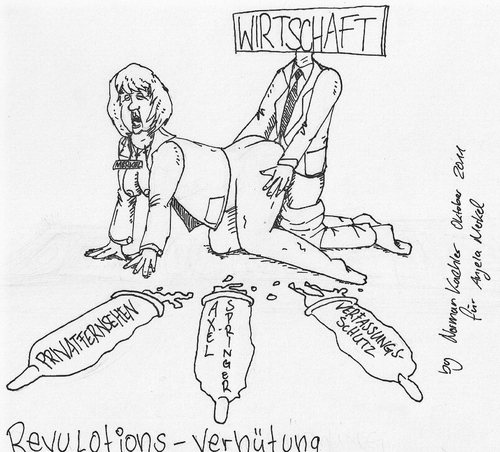 WIRTSCHAFT
MERKEL
PRIVATFERNSEHEN
AXEL
SPRINGER
VERFASSUNGS-
SCHUTZ
by Norman Oktober 2011
für Angela Merkel
Revulotions-verhütung